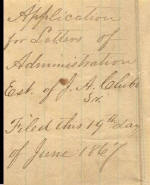 Application
for Letters of
Administration
Est. of J. A. Clubb
Sr.
Filed this 19th day
of June 1867